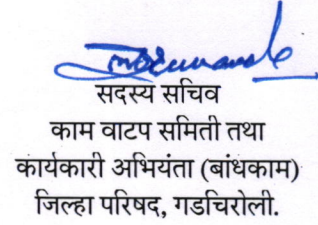 सदस्य सचिव
काम वाटप समिती तथा
कार्यकारी अभियंता (बांधकाम)
जिल्हा परिषद, गडचिरोली.